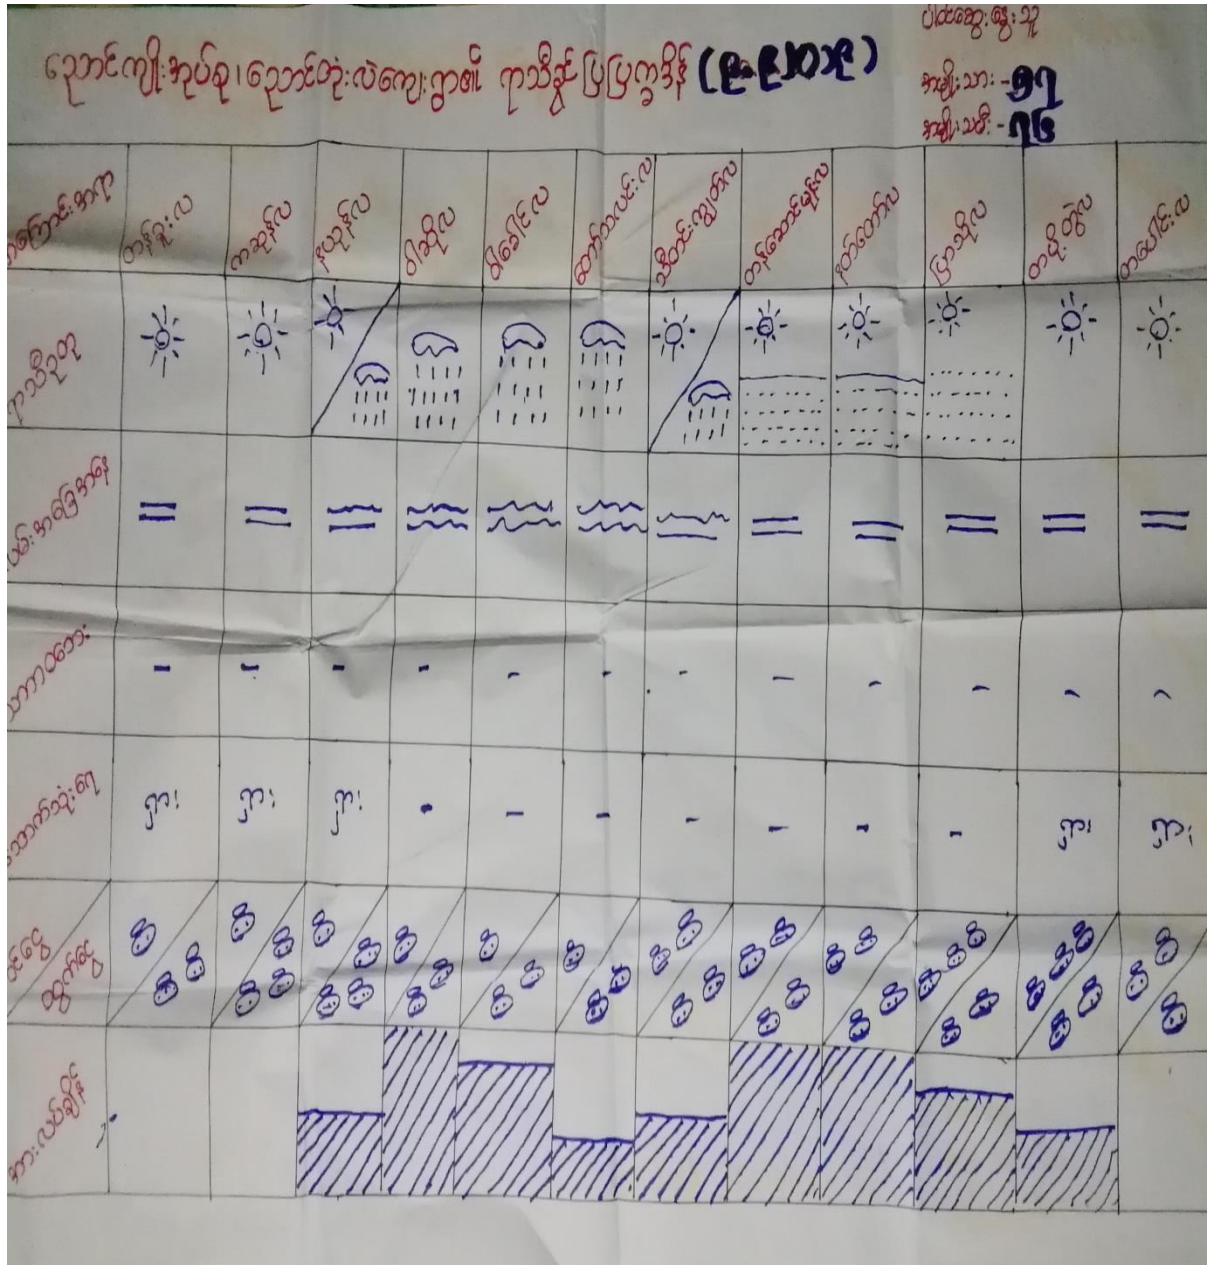 ပါဝင်ဆွေးနွေးသူ
ညောင်ကျိုးအုပ်စု၊ ညောင်တုံးလဲကျေးရွာ၏ ရာသီခွင်ပြပြက္ခဒိန် (၉.၉.၂၀၁၉)
အမျိုးသား - ၅၇
အမျိုးသမီး - ၇၆
အကြောင်းအရာ တန်ခူးလ ကဆုန်လ နယုန်လ ဝါဆိုလ ဝါခေါင်လ တော်သလင်းလ သီတင်းကျွတ်လ တန်ဆောင်မုန်းလ နတ်တော်လ ပြာသိုလ တပို့တွဲလ တပေါင်းလ
ရာသီဥတု
လမ်းအခြေအနေ
သဘာဝဘေး - - - - - - - - - - - -
သောက်သုံးရေ ရှား ရှား ရှား - - - - - - - ရှား ရှား
ဝင်ငွေ
ထွက်ငွေ
အားလပ်ချိန်